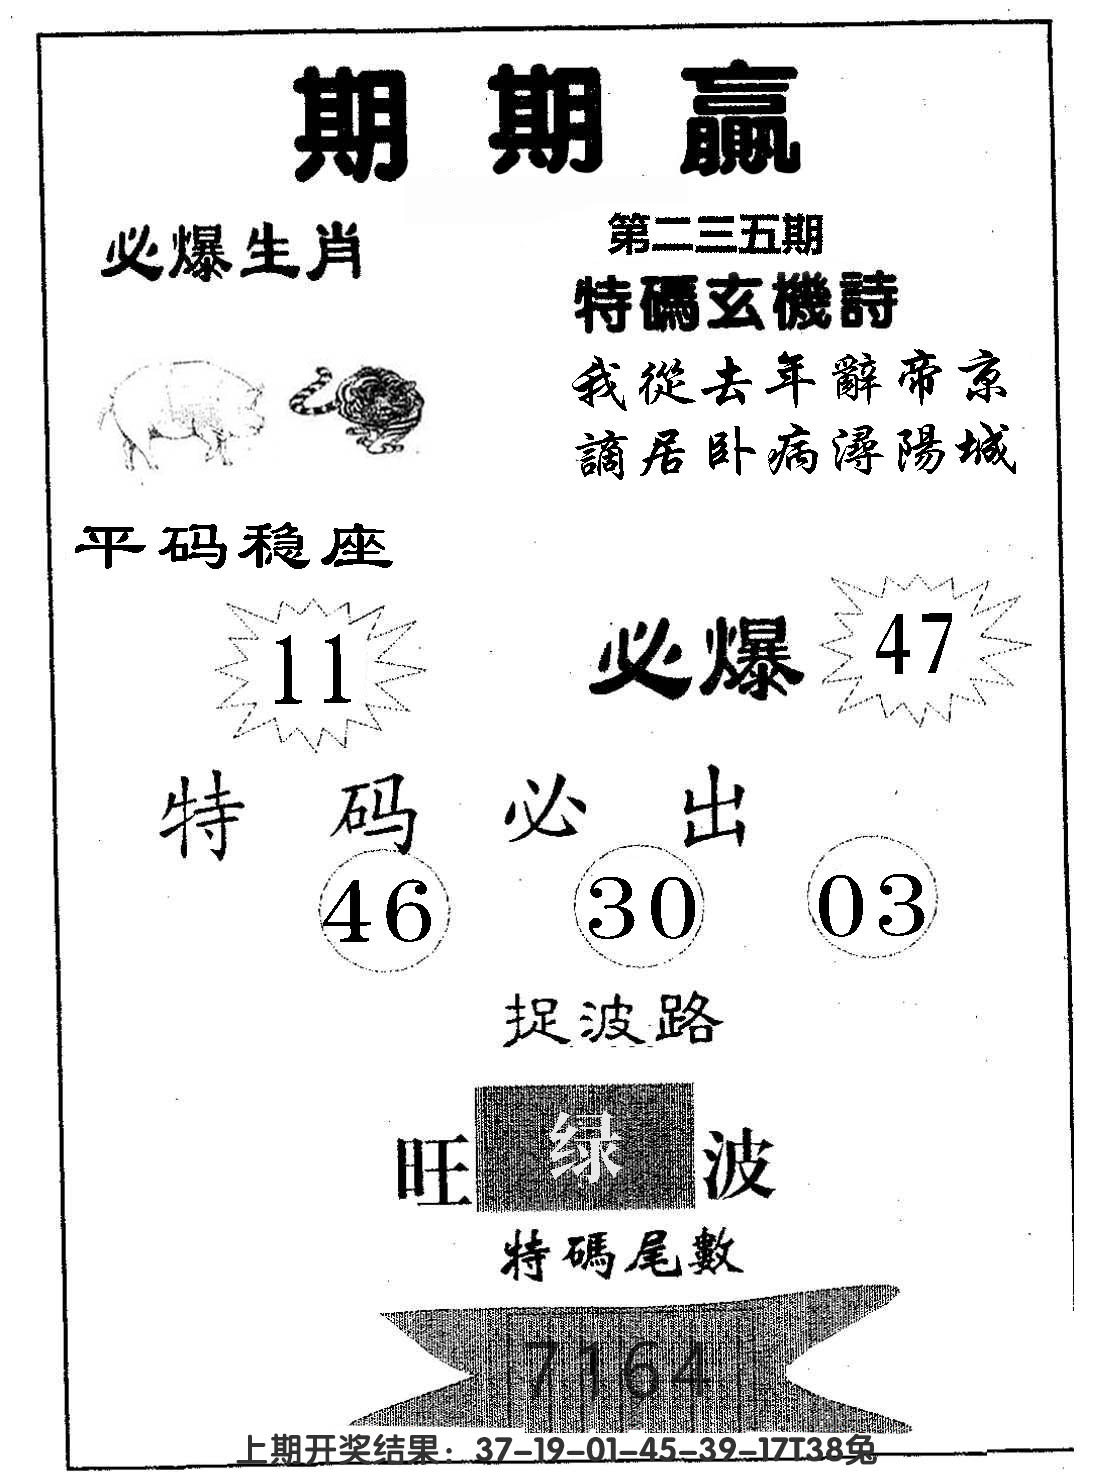 期期赢
必爆生肖
第二三五期
特碼玄機詩
我從去年辭帝京
謫居卧病潯陽城
平码稳座
11
必爆 47
特码必出
46 30 03
捉波路
旺 绿 波
特碼尾數
7164
上期开奖结果：37-19-01-45-39-17T38兔